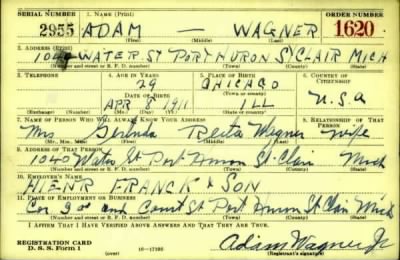 SERIAL NUMBER 1. NAME (Print) ORDER NUMBER
2955 ADAM — WAGNER 1620
(First) (Middle) (Last)
2. ADDRESS (Print)
1040 WATER ST PORT HURON ST CLAIR MICH
(Number and street or R. F. D. number) (Town) (County) (State)
3. TELEPHONE 4. AGE IN YEARS 5. PLACE OF BIRTH 6. COUNTRY OF CITIZENSHIP
29 CHICAGO
DATE OF BIRTH (Town or county)
APR 8 1911 ILL U.S.A
(Exchange) (Number) (Mo.) (Day) (Yr.) (State or country)
7. NAME OF PERSON WHO WILL ALWAYS KNOW YOUR ADDRESS 8. RELATIONSHIP OF THAT PERSON
Mrs Wagner wife
(Mr., Mrs., Miss) (First) (Middle) (Last)
9. ADDRESS OF THAT PERSON
1040 Water St Port Huron St. Clair Mich
(Number and street or R. F. D. number) (Town) (County) (State)
10. EMPLOYER'S NAME
HIENR FRANCK & SON
11. PLACE OF EMPLOYMENT OR BUSINESS
Cor 3rd and Court St Port Huron St Clair Mich
(Number and street or R. F. D. number) (Town) (County) (State)
I AFFIRM THAT I HAVE VERIFIED ABOVE ANSWERS AND THAT THEY ARE TRUE.
REGISTRATION CARD
D. S. S. Form 1 (over) 16—17105 Adam Wagner Jr
(Registrant's signature)